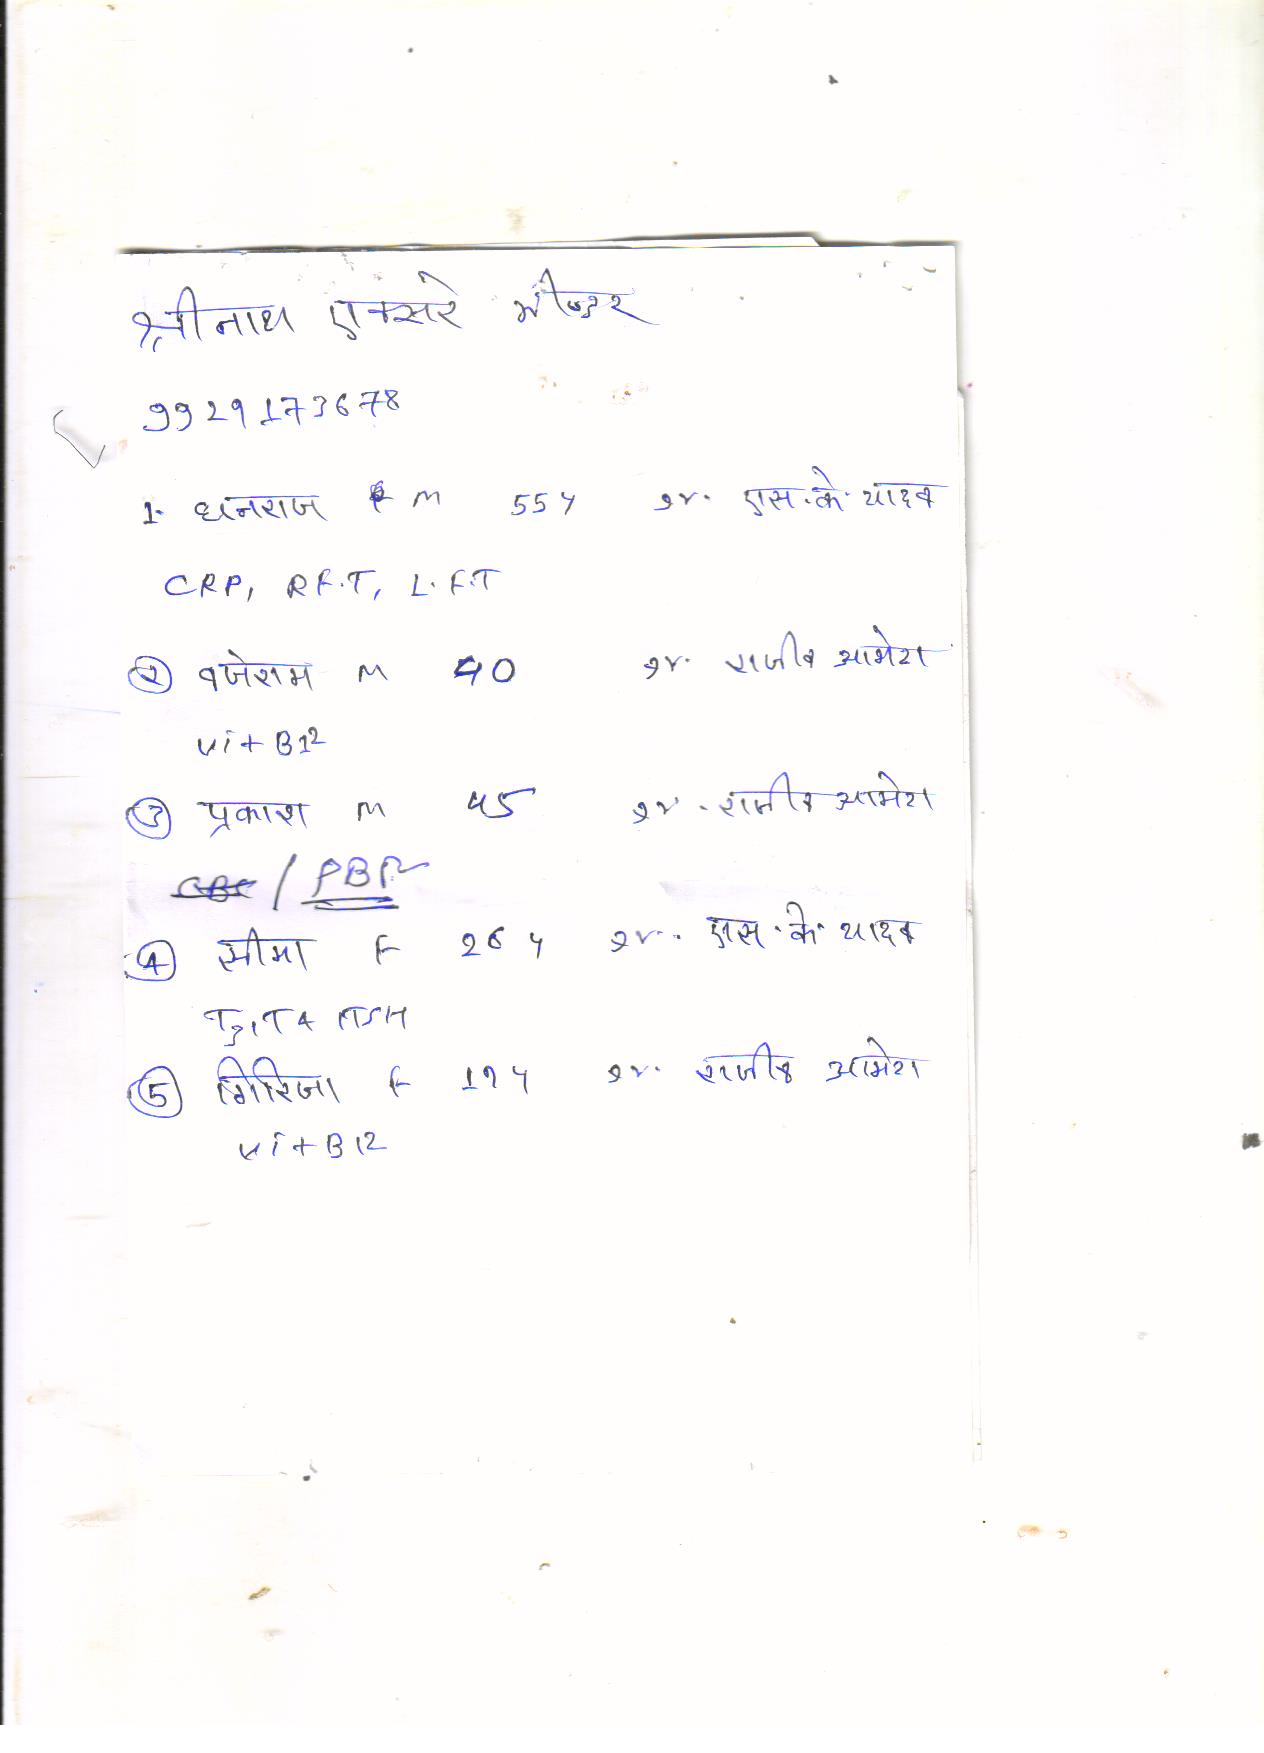 श्रीनाथ एक्सरे भीण्डर
9929173678
1. धनराज M 55 Y डॉ. एस. के. यादव
CRP, R F.T, L. F.T
② वजेराम M 40 डॉ. राजीव आमेटा
Vit B12
③ प्रकाश M 45 डॉ. राजीव आमेटा
CBC / PBF
④ सीमा F 26 Y डॉ. एस. के. यादव
T3, T4 TSH
⑤ गिरिजा F 19 Y डॉ. राजीव आमेटा
Vit B12